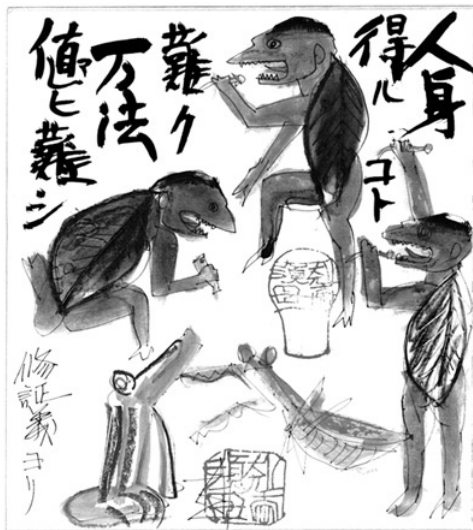 人身
得ルコト
難ク
万法
値ヒ難シ
修証義ヨリ